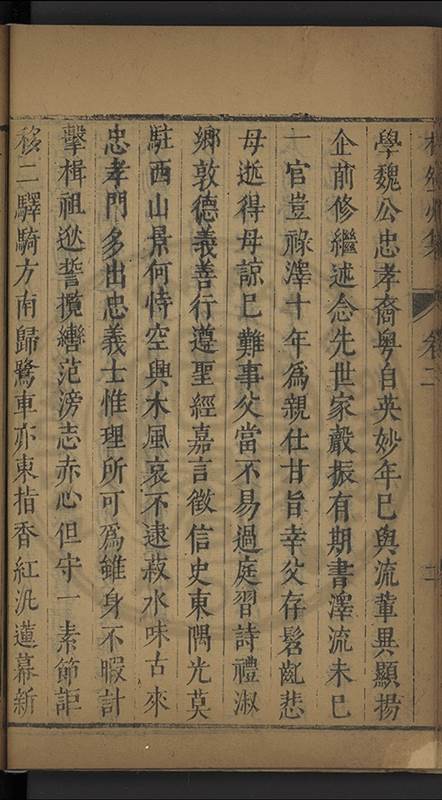 卷二
學魏公忠孝裔粤自英妙年巳與流輩異顯揚
企前修繼述念先世家聲振有期書澤流未巳
一官豈祿澤十年為親仕甘旨幸父存髫齔悲
母逝得母諒巳難事父當不易過庭習詩禮淑
鄉敦德義善行遵聖經嘉言徵信史東隅光莫
駐西山景何恃空興木風哀不逮菽水味古來
忠孝門多出忠義士惟理所可為雖身不暇計
擊楫祖逖誓攬轡范滂志赤心但守一素節詎
移二驛騎方南歸鷺車亦東指香紅汎蓮幕新